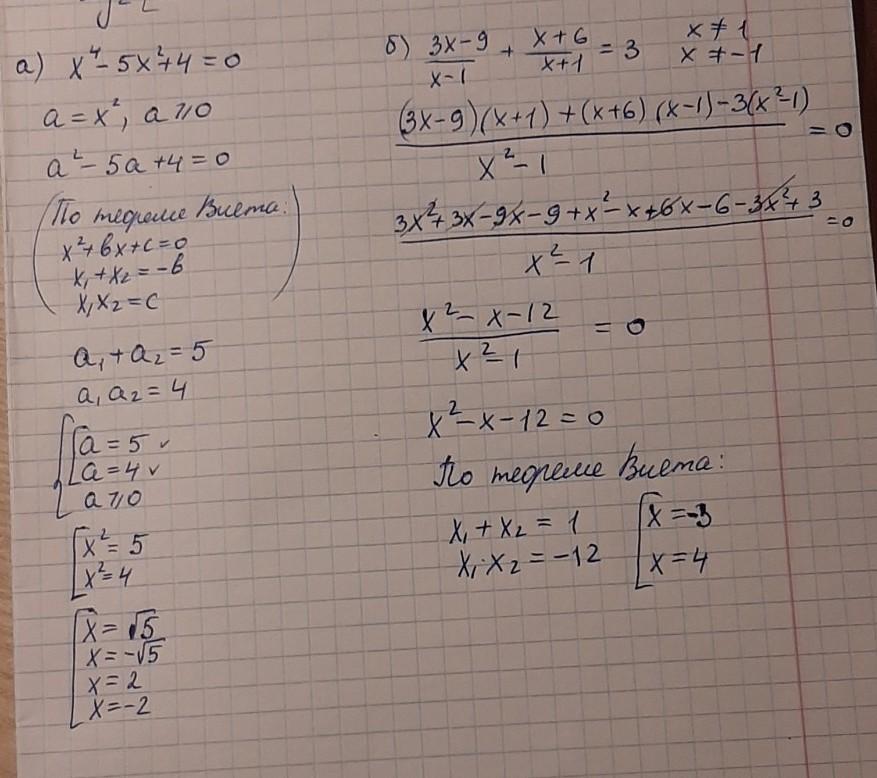 а) x⁴ - 5x² + 4 = 0
a = x², a ⩾ 0
a² - 5a + 4 = 0
(По теореме Виета:
x² + bx + c = 0
x₁ + x₂ = -b
x₁x₂ = c)
a₁ + a₂ = 5
a₁a₂ = 4
a = 5 ✓
a = 4 ✓
a ⩾ 0
x² = 5
x² = 4
x = √5
x = -√5
x = 2
x = -2
б) (3x-9)/(x-1) + (x+6)/(x+1) = 3 x ≠ 1
x ≠ -1
((3x-9)(x+1) + (x+6)(x-1) - 3(x²-1))/(x²-1) = 0
(3x² + 3x - 9x - 9 + x² - x + 6x - 6 - 3x² + 3)/(x²-1) = 0
(x² - x - 12)/(x²-1) = 0
x² - x - 12 = 0
По теореме Виета:
x₁ + x₂ = 1 x = -3
x₁·x₂ = -12 x = 4